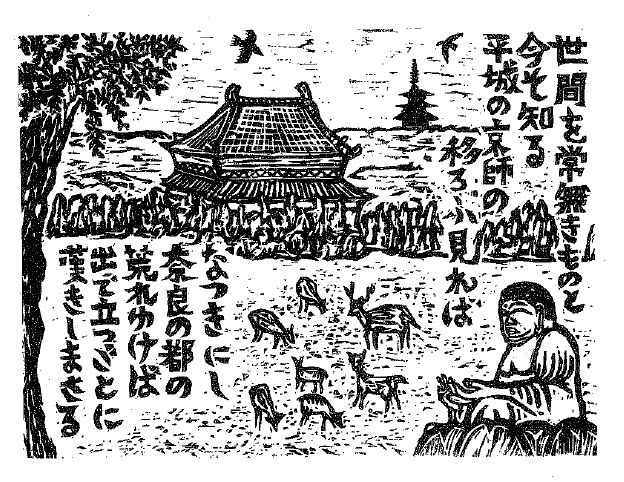 世間を常無きものと
今そ知る
平城の京師の
移ろふ見れば
なつきにし
奈良の都の
荒れゆけば
出で立つごとに
嘆きしまさる